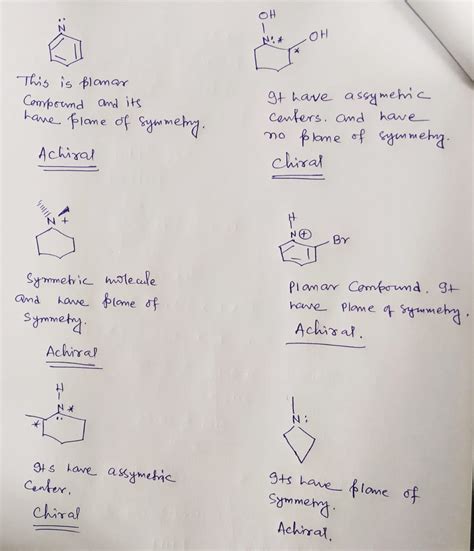 N
This is planar
Compound and its
have plane of symmetry.
Achiral
OH
N: *
OH
*
It have assymetric
centers. and have
no plane of symmetry.
Chiral
N +
Symmetric molecule
and have plane of
Symmetry.
Achiral
H
N ⊕
Br
Planar Compound. It
have Plane of symmetry.
Achiral.
H
N *
*
Its have assymetric
Center.
Chiral
N:
Its have plane of
Symmetry.
Achiral.